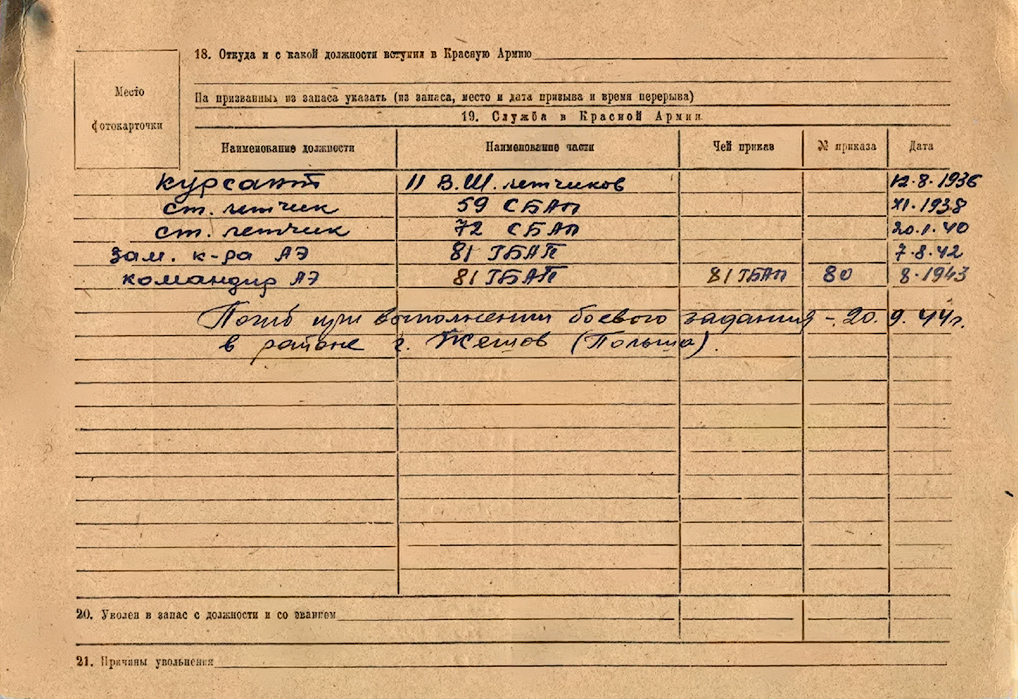 18. Откуда и с какой должности вступил в Красную Армию
Место
фотокарточки
На призванных из запаса указать (из запаса, место и дата призыва и время перерыва)
19. Служба в Красной Армии
Наименование должности Наименование части Чей приказ № приказа Дата
курсант 11 В.Ш. летчиков 12.8.1936
ст. летчик 59 СБАП XI.1938
ст. летчик 72 СБАП 20.1.40
зам. к-ра АЭ 81 ГБАП 7.8.42
командир АЭ 81 ГБАП 81 ГБАП 80 8.1943
Погиб при выполнении боевого задания - 20.9.44г.
в районе г. Жешов (Польша).
20. Уволен в запас с должности и со званием
21. Причины увольнения